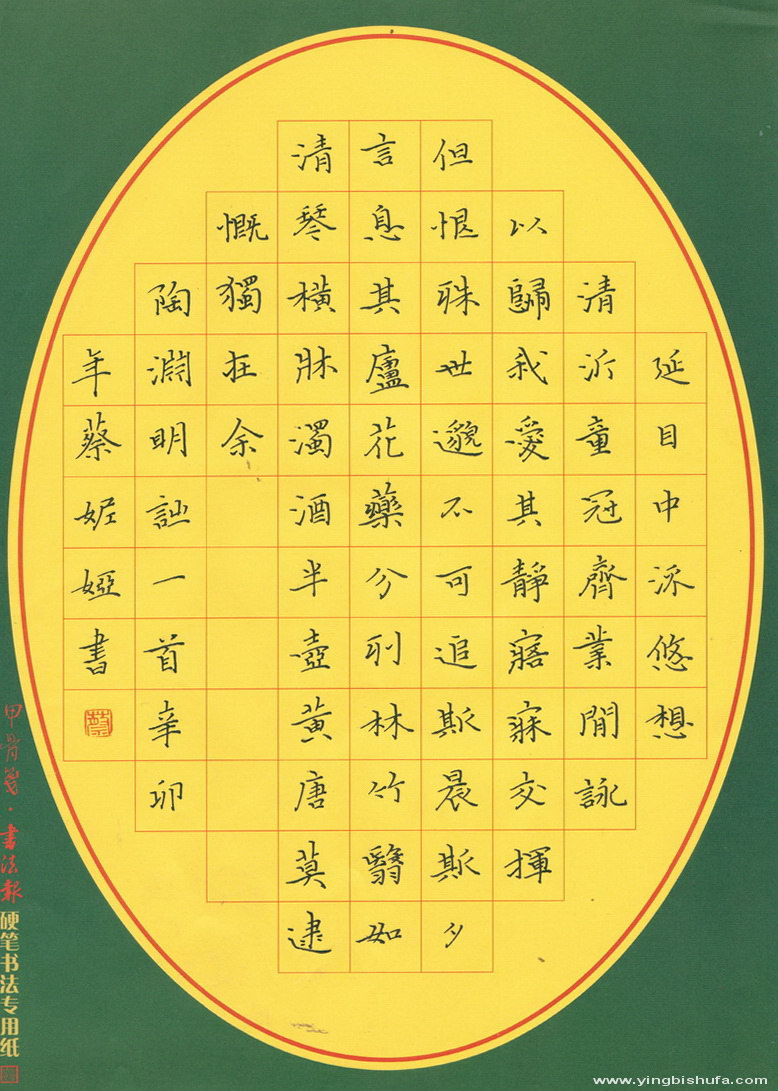 延目中流悠想
清沂童冠齊業閒詠
以歸我愛其靜寤寐交揮
但恨殊世邈不可追斯晨斯夕
言息其廬花藥分列林竹翳如
清琴橫牀濁酒半壺黃唐莫逮
慨獨在余
陶淵明詩一首辛卯
年蔡妮婭書
甲骨箋·書法報硬笔书法专用纸
www.yingbishufa.com